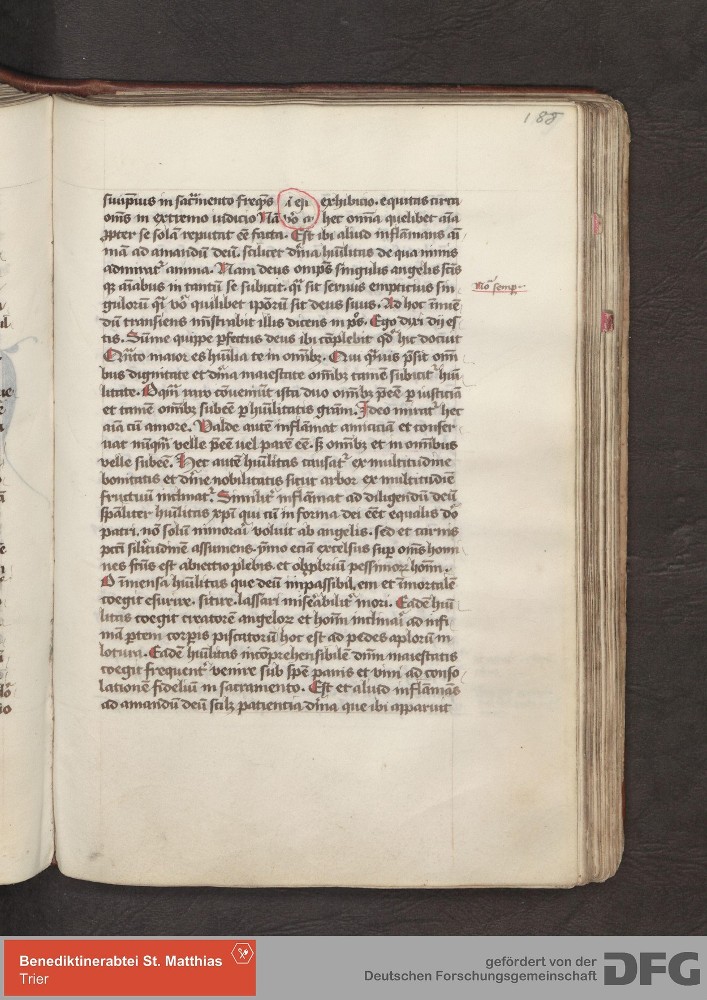 188
suuipsius in sacr̄mento freq̄ns exhibicio. equitas circa
om̄s in extremo iudicio Nā vō hec omīa quelibet aīa
ꝓpter se solā reputat eē facta. Est ibi aliud inflāmans aī
mā ad amandū deū. scilicet dīna hūilitas de qua nimis
admirat̄ anima. Nam deus omp̄s singulis angelis sc̄is
qꝫ aīabus in tantū se subicit. q̄si sit seruus empticius sin
gulorū q̄si v̄o quilibet ip̄orū sit deus suus. Ad hoc īnuē
dū transiens mīstrabit illis dicens in p̄s. Ego dixi dij es
tis. Sūme quippe ꝑfectus deus ibi cōplebit qd̄ hic docuit
Quāto maior es hūilia te in omībꝫ. Qui q̄uis p̄sit omī
bus dignitate et dīna maiestate omībꝫ tamē subicit̄ hūi
litate. Qm̄ raro cōueniūt ista duo omībꝫ p̄eē ꝑ iusticiā
et tamē omībꝫ subeē ꝑ hūilitatis grām. Ideo mirat̄ hec
aīa cū amore. Valde autē inflāmat amiciciā et conser
uat nūqm̄ velle p̄eē uel parē eē. sꝫ omībꝫ et in omībus
velle subeē. Hec autē hūilitas causat̄ ex multitudine
bonitatis et dīne nobilitatis sicut arbor ex multitudīe
fructuū inclinat̄. Similit̄ inflāmat ad diligendū deū
sp̄aliter hūilitas xp̄i qui cū in forma dei eēt equalis dō
patri. nō solū minorai voluit ab angelis. sed et carnis
pctī silitudinē assumens. ymo eciā excelsus sup̄ om̄s homi
nes fctūs est abiectio plebis. et obꝓbriū pessimoꝝ homī.
O īmensa hūilitas que deū impassibilem et īmortalē
coegit esurire. sitire. lassari miserabilit̄ mori. Eadē hūi
litas coegit creatorē angeloꝝ et homī inclinari ad infi
mā ꝑtem corꝑis piscatorū hoc est ad pedes aplorū in
lotura. Eadē hūilitas incōprehensibilē dn̄m maiestatis
coegit frequent̄ venire sub spē panis et vini ad conso
lationē fidelium in sacramento. Est et aliud inflāmās
ad amandū deū scilꝫ patientia dīna que ibi apparuit
Nō semp
Benediktinerabtei St. Matthias
Trier
gefördert von der
Deutschen Forschungsgemeinschaft
DFG